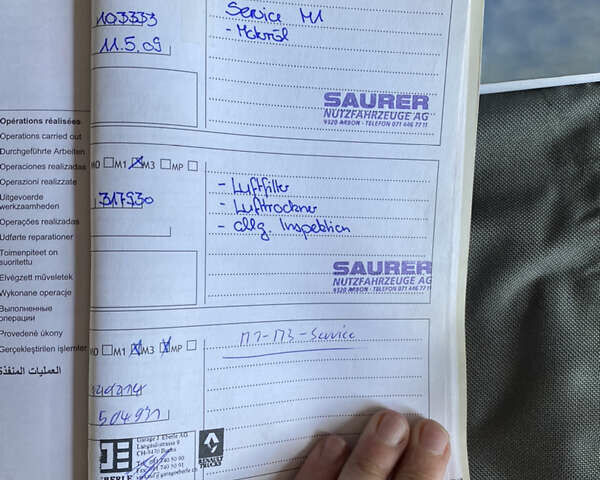 103333
11.5.09
Service M1
- Motoröl
SAURER
NUTZFAHRZEUGE AG
9320 ARBON - TELEFON 071 446 77 11
Opérations réalisées
Operations carried out
Durchgeführte Arbeiten
Operaciones realizadas
Operazioni realizzate
Uitgevoerde
werkzaamheden
Operações realizadas
Udførte reparationer
Toimenpiteet on
suoritettu
Elvégzett műveletek
Wykonane operacje
Выполненные
операции
Provedené úkony
Gerçekleştirilen işlemler
العمليات المنفذة
M0 M1 M3 MP
317930
- Luftfilter
- Lufttrockner
- allg. Inspektion
SAURER
NUTZFAHRZEUGE AG
9320 ARBON - TELEFON 071 446 77 11
M0 M1 M3 MP
504931
M1-M3-Service
EBERLE
Garage J. Eberle AG
RENAULT
TRUCKS